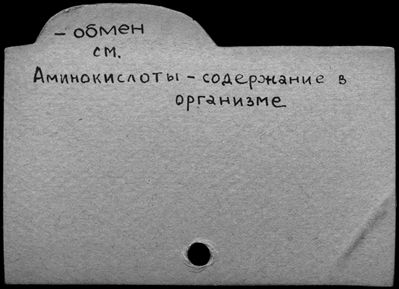 – обмен
см.
Аминокислоты – содержание в
организме